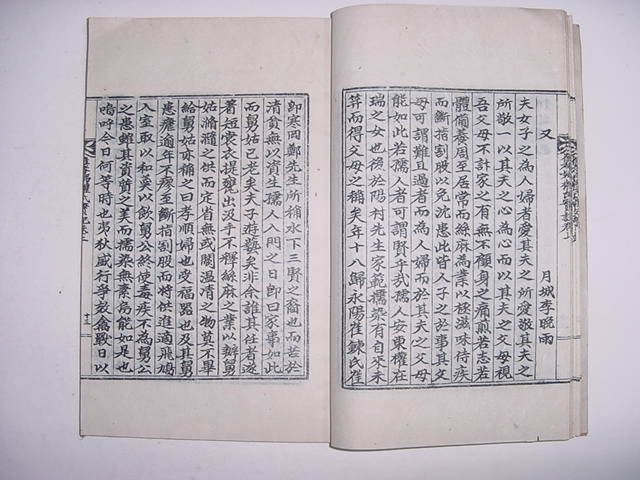 又
月城李晩雨
夫女子之為人婦者愛其夫之所愛敬其夫之
所敬一以其夫之心為心而以其夫之父母視
吾父母不計家之有無不顧身之痛煎若志若
體備養周至居常而絲麻為業以極滋味待疾
而斷指割股以免沈患此皆人子之於事其父
母可謂難且過者而為人婦而於其夫之父母
能如此若孺人者可謂賢乎哉孺人安東權在
瑞之女也後於陽村先生家範擩染有自來未
笄而得父母之稱矣年十八歸永陽崔鍊氏崔
卽寒岡鄭先生所稱水下三賢之裔也而苦於
清貧無以資生孺人入門之日卽曰家事如此
而舅姑已老矣夫子遊藝矣非余誰其任者遂
著短裳衣提甕出汲手不釋絲麻之業以辦舅
姑滫瀡之供而定省無或闕溫清之物質不畢
給舅姑亦稱之曰孝順婦也受福路也及其舅
患癰適年不瘳至斷指割股而將供進適飛鴆
入室取以和羹以飮舅公終使毒疾不為舅公
之患蟬其資質之美而擩染無素烏能如是也
嗚呼今日何等時也夷狄威行學敎禽戰日以
十三